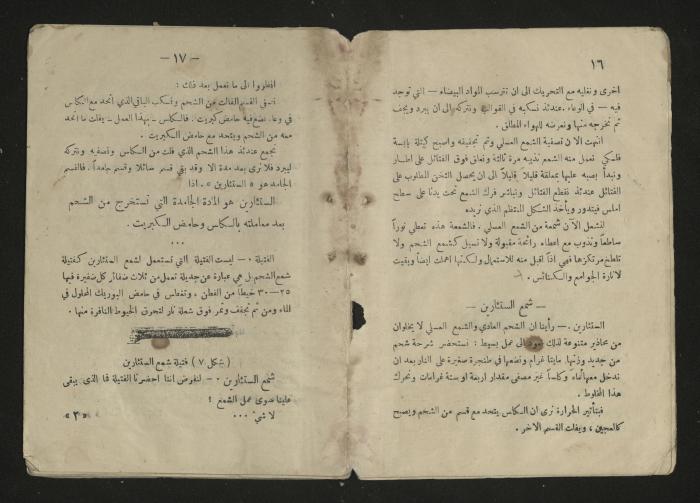 ١٦
اخرى ونغليه مع التحريك الى ان تترسب المواد البيضاء — التي توجد
فيه — في الوعاء عندئذ نسكبه في القوالب ونتركه الى ان يبرد ويجف
ثم نخرجه منها ونعرضه للهواء المطلق .
انتهت الآن تصفية الشمع العسلي وتم تجفيفه واصبح كتلة يابسة
فلكي نعمل منه الشمع نذيبه مرة ثالثة ونعلق فوق الفتائل على اطار
ونبدأ بصبه عليها بملعقة قليلاً قليلاً الى ان يحصل الثخن المطلوب على
الفتائل عندئذ نقطع الفتائل ونباشر فرك الشمع تحت يدنا على سطح
املس فيتدور ويأخذ الشكل المنتظم الذي نريده
لنشعل الآن شمعة من الشمع العسلي . فالشمعة هذه تعطي نوراً
ساطعاً وتذوب مع اعطاء رائحة مقبولة ولا تسيل كشمع الشحم ولا
تلطخ مرتكزها فهي اذاً اقبل منه للاستعمال ولكنها اهملت ايضاً وبقيت
لانارة الجوامع والكنائس .
— شمع الستئارين —
الستئارين . — رأينا ان الشحم العادي والشمع العسلي لا يخلوان
من محاذير متنوعة لذلك نعود الى عمل بسيط : نستحضر شرحة شحم
من جديد وزنها مايتا غرام ونضعها في طنجرة صغيرة على النار بعد ان
ندخل معها الماء وكلساً غير مصفى مقدار اربعة او ستة غرامات ونحرك
هذا المخلوط .
فبتأثير الحرارة نرى ان الكلس يتحد مع قسم من الشحم ويصبح
كالعجين ، ويفلت القسم الآخر .
— ١٧ —
انظروا الى ما نعمل بعد ذلك :
القسم الفالت من الشحم ونسكب الباقي الذي اتحد مع الكلس
في وعاء نضع فيه حامض كبريت . فالكلس — بهذا العمل — يفلت ما اتحد
معه من الشحم ويتحد مع حامض الكبريت .
نجمع عندئذ هذا الشحم الذي فلت من الكلس ونصفيه ونتركه
ليبرد فلا نرى بعد مدة الا وقد بقي قسم سائلا وقسم جامداً . فالقسم
الجامد هو « الستئارين » . اذاً
الستئارين هو المادة الجامدة التي نستخرج من الشحم
بعد معاملته بالكلس وحامض الكبريت .
• • •
الفتيلة . — ليست الفتيلة التي تستعمل لشمع الستئارين كفتيلة
شمع الشحم بل هي عبارة عن جديلة تعمل من ثلاث ضفائر كل ضفيرة فيها
٢٥ — ٣٠ خيطاً من القطن ، وتغطس في حامض البوريك المحلول في
الماء ومن ثم تجفف وتمر فوق شعلة نار لتحرق الخيوط النافرة منها .
( شكل ٧ ) فتيلة شمع الستئارين
شمع الستئارين . — لنفرض اننا احضرنا الفتيلة فما الذي يبقى
علينا سوى عمل الشمع ؟
لا شيء . . .
« ٣ »